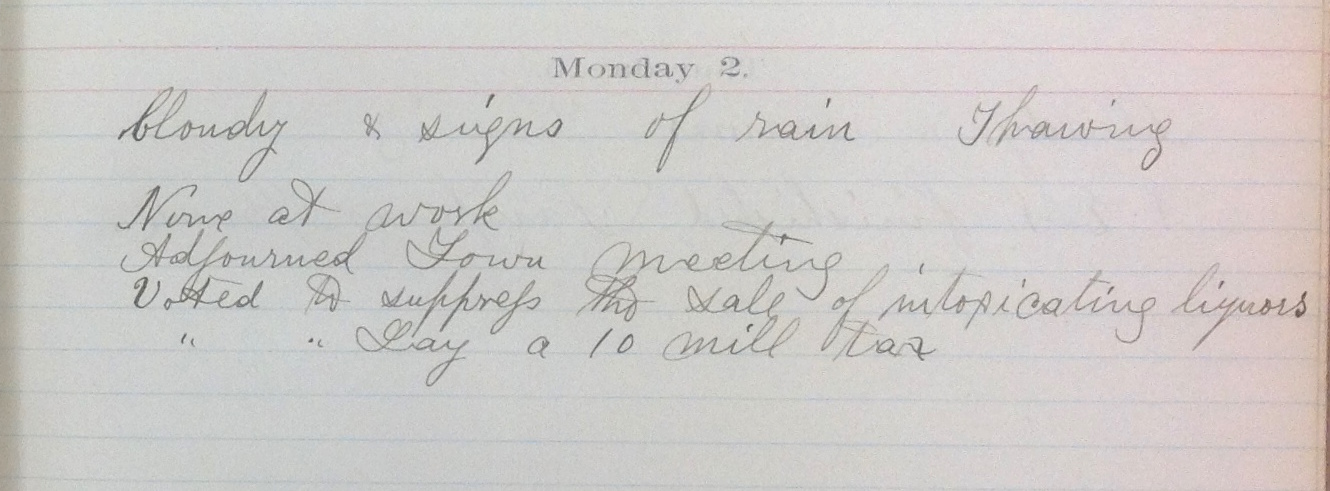 Monday 2.
Cloudy & signs of rain Thawing
None at work
Adjourned Town meeting
Voted to suppress the sale of intoxicating liquors
" " Lay a 10 mill tax